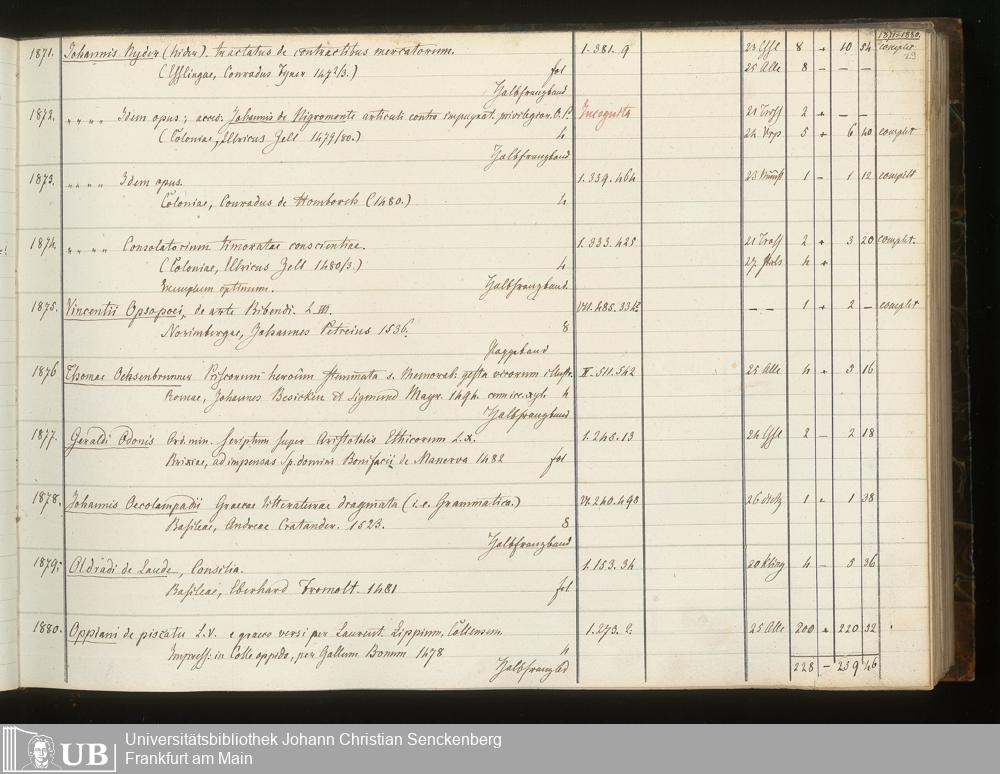 1871-1880.
29
1871. Johannis Nyder (Nider). tractatus de contractibus mercatorum. 1. 381. 9 23 8 10 54 complet
(Esslingae, Conradus Fyner 147⅔.) fol 25 Alle 8 – – –
Halbfranzband
1872. „ „ „ „ Idem opus; acced. Johannis de Nigromonte articuli contra impugnat. privilegior. O. P. Incognita 21 Tross 2
(Coloniae, Ulricus Zell 1479/80.) 4 24 5 6 40 complet
Halbfranzband
1873. „ „ „ „ Idem opus. 1. 339. 464 23 1 – 1 12 complett
Coloniae, Conradus de Homborch (1480.) 4
1874. „ „ „ „ Consolatorium timoratae conscientiae. 1. 333. 425 21 Tross 2 3 20 complet.
(Coloniae, Ulricus Zell 1480/3.) 4 27 4
Exemplum optimum. Halbfranzband.
1875. Vincentii Opsopoei, de arte Bibendi. L. III. VII. 485. 334 – – 1 2 – complet
Norimbergae, Johannes Petreius 1536. 8
Pappeband
1876 Thomae Ochsenbrunner Priscorum heroum stemmata s. Memorab. gesta virorum illustr. II. 511. 542 25 Alle 4 3 16
Romae, Johannes Besicken et Sigmund Mayr. 1494. cum ico. xyl. 4
Halbfranzband
1877. Geraldi Odonis Ord. min. Scriptum super Aristotelis Ethicorum L. X. 1. 245. 13 24 2 – 2 18
Brixiae, ad impensas Sp. domini Bonifacii de Manerva 1482 fol
1878. Johannis Oecolampadii Graecae litteraturae dragmata (i. e. Grammatica.) VI. 240. 498 26 1 1 38
Basileae, Andreae Cratander. 1523. 8
Halbfranzband
1879. Oldradi de Laude, Consilia. 1. 153. 34 20 Kling 4 – 5 36
Basileae, Eberhard Fromolt. 1481 fol.
1880. Oppiani de piscatu L. V. e graeco versi per Laurent. Lippium, Collensem. 1. 273. 2. 25 Alle 200 220 32
Impress: in Colle oppido, per Gallum Bonum 1478 4
Halbfranzbd
228 – 259 46
UB
Universitätsbibliothek Johann Christian Senckenberg
Frankfurt am Main